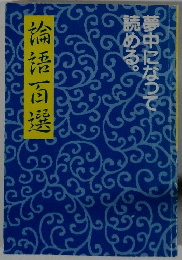 夢中になって
読める。
論語百選